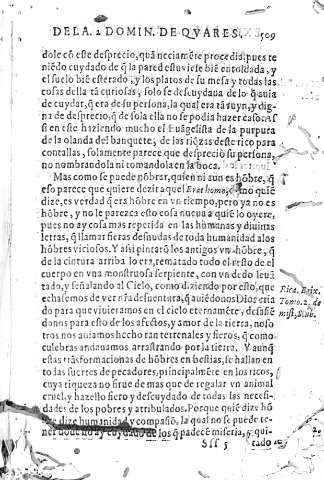 DE LA. 2 DOMIN. DE QVARES. 509
dole cõ este desprecio, quã neciamẽte procedia, pues te
niẽdo cuydado de q̃ la pared estuviesse biẽ entoldada, y
el suelo biẽ esterado, y los platos de su mesa y todas las
cosas della tã curiosas, solo se descuydaua de lo q̃ auia
de cuydar, q̃ era de su persona, la qual era tã ruyn, y dig-
na de desprecio, q̃ de sola ella no se podia hazer caso: As
si en este haziendo mucho el Euãgelista de la purpura
de la olanda del banquete, de las riq̃zas deste rico para
contallas, solamente parece que despreciò su persona,
no nombrandola ni tomandola en la boca.
Mas como se puede nõbrar, quien ni aun es hõbre, q̃
eso parece que quiere dezir aquel Erat homo, quiẽ
dize, es verdad q̃ era hõbre en vn tiempo, pero ya no es
hõbre, y no le parezca esto cosa nueua a quiẽ lo oyere,
pues no ay cosa mas repetida en las humanas y diuinas
letras, q̃ llamar fieras desnudas de toda humanidad a los
hõbres viciosos. Y assi pintarõ los antigos vn hõbre, q̃
de la cintura arriba lo era, rematado todo el resto de el
cuerpo en vna monstruosa serpiente, con vn dedo leuã
tado, y señalando al Cielo, como diziendo por esto, que
echasemos de ver nr̃a desuentura, q̃ auiẽdonos Dios cria
do para que viuieramos en el cielo eternamẽte, desasiẽ
donos para esto de los afectos, y amor de la tierra, noso
tros nos auiamos hecho tan terrenales y fieros, q̃ como
culebras andauamos arrastrando por la tierra. Y aunq̃
estas trasformaciones de hõbres en bestias, se hallan en
todas suertes de pecadores, principalmẽte en los ricos,
cuya riqueza no sirue de mas que de regalar vn animal
cruel, y hazello fiero y descuydado de todas las necesi-
dades de los pobres y atribulados. Porque quiẽ dize hõ
bre dize humanidad y compasiõ, la qual no se puede te-
ner donde no ay cuydado de los q̃ padecẽ miseria, y qui-
Sss 5 tado
Rica. Brix.
Tomo. 2. de